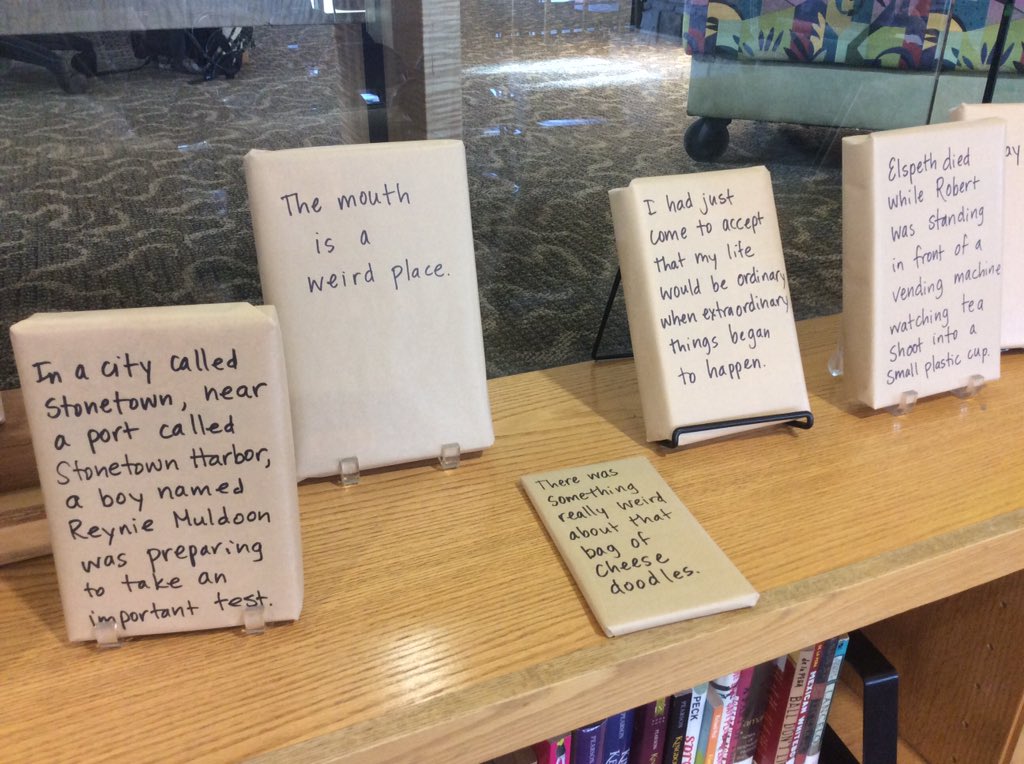 The mouth
is a
weird place.
In a city called
Stonetown, near
a port called
Stonetown Harbor,
a boy named
Reynie Muldoon
was preparing
to take an
important test.
I had just
come to accept
that my life
would be ordinary
when extraordinary
things began
to happen.
Elspeth died
while Robert
was standing
in front of a
vending machine
watching tea
shoot into a
small plastic cup.
ay
There was
something
really weird
about that
bag of
cheese
doodles.
PEARSON
PECK
PEARSON
MEXICAN